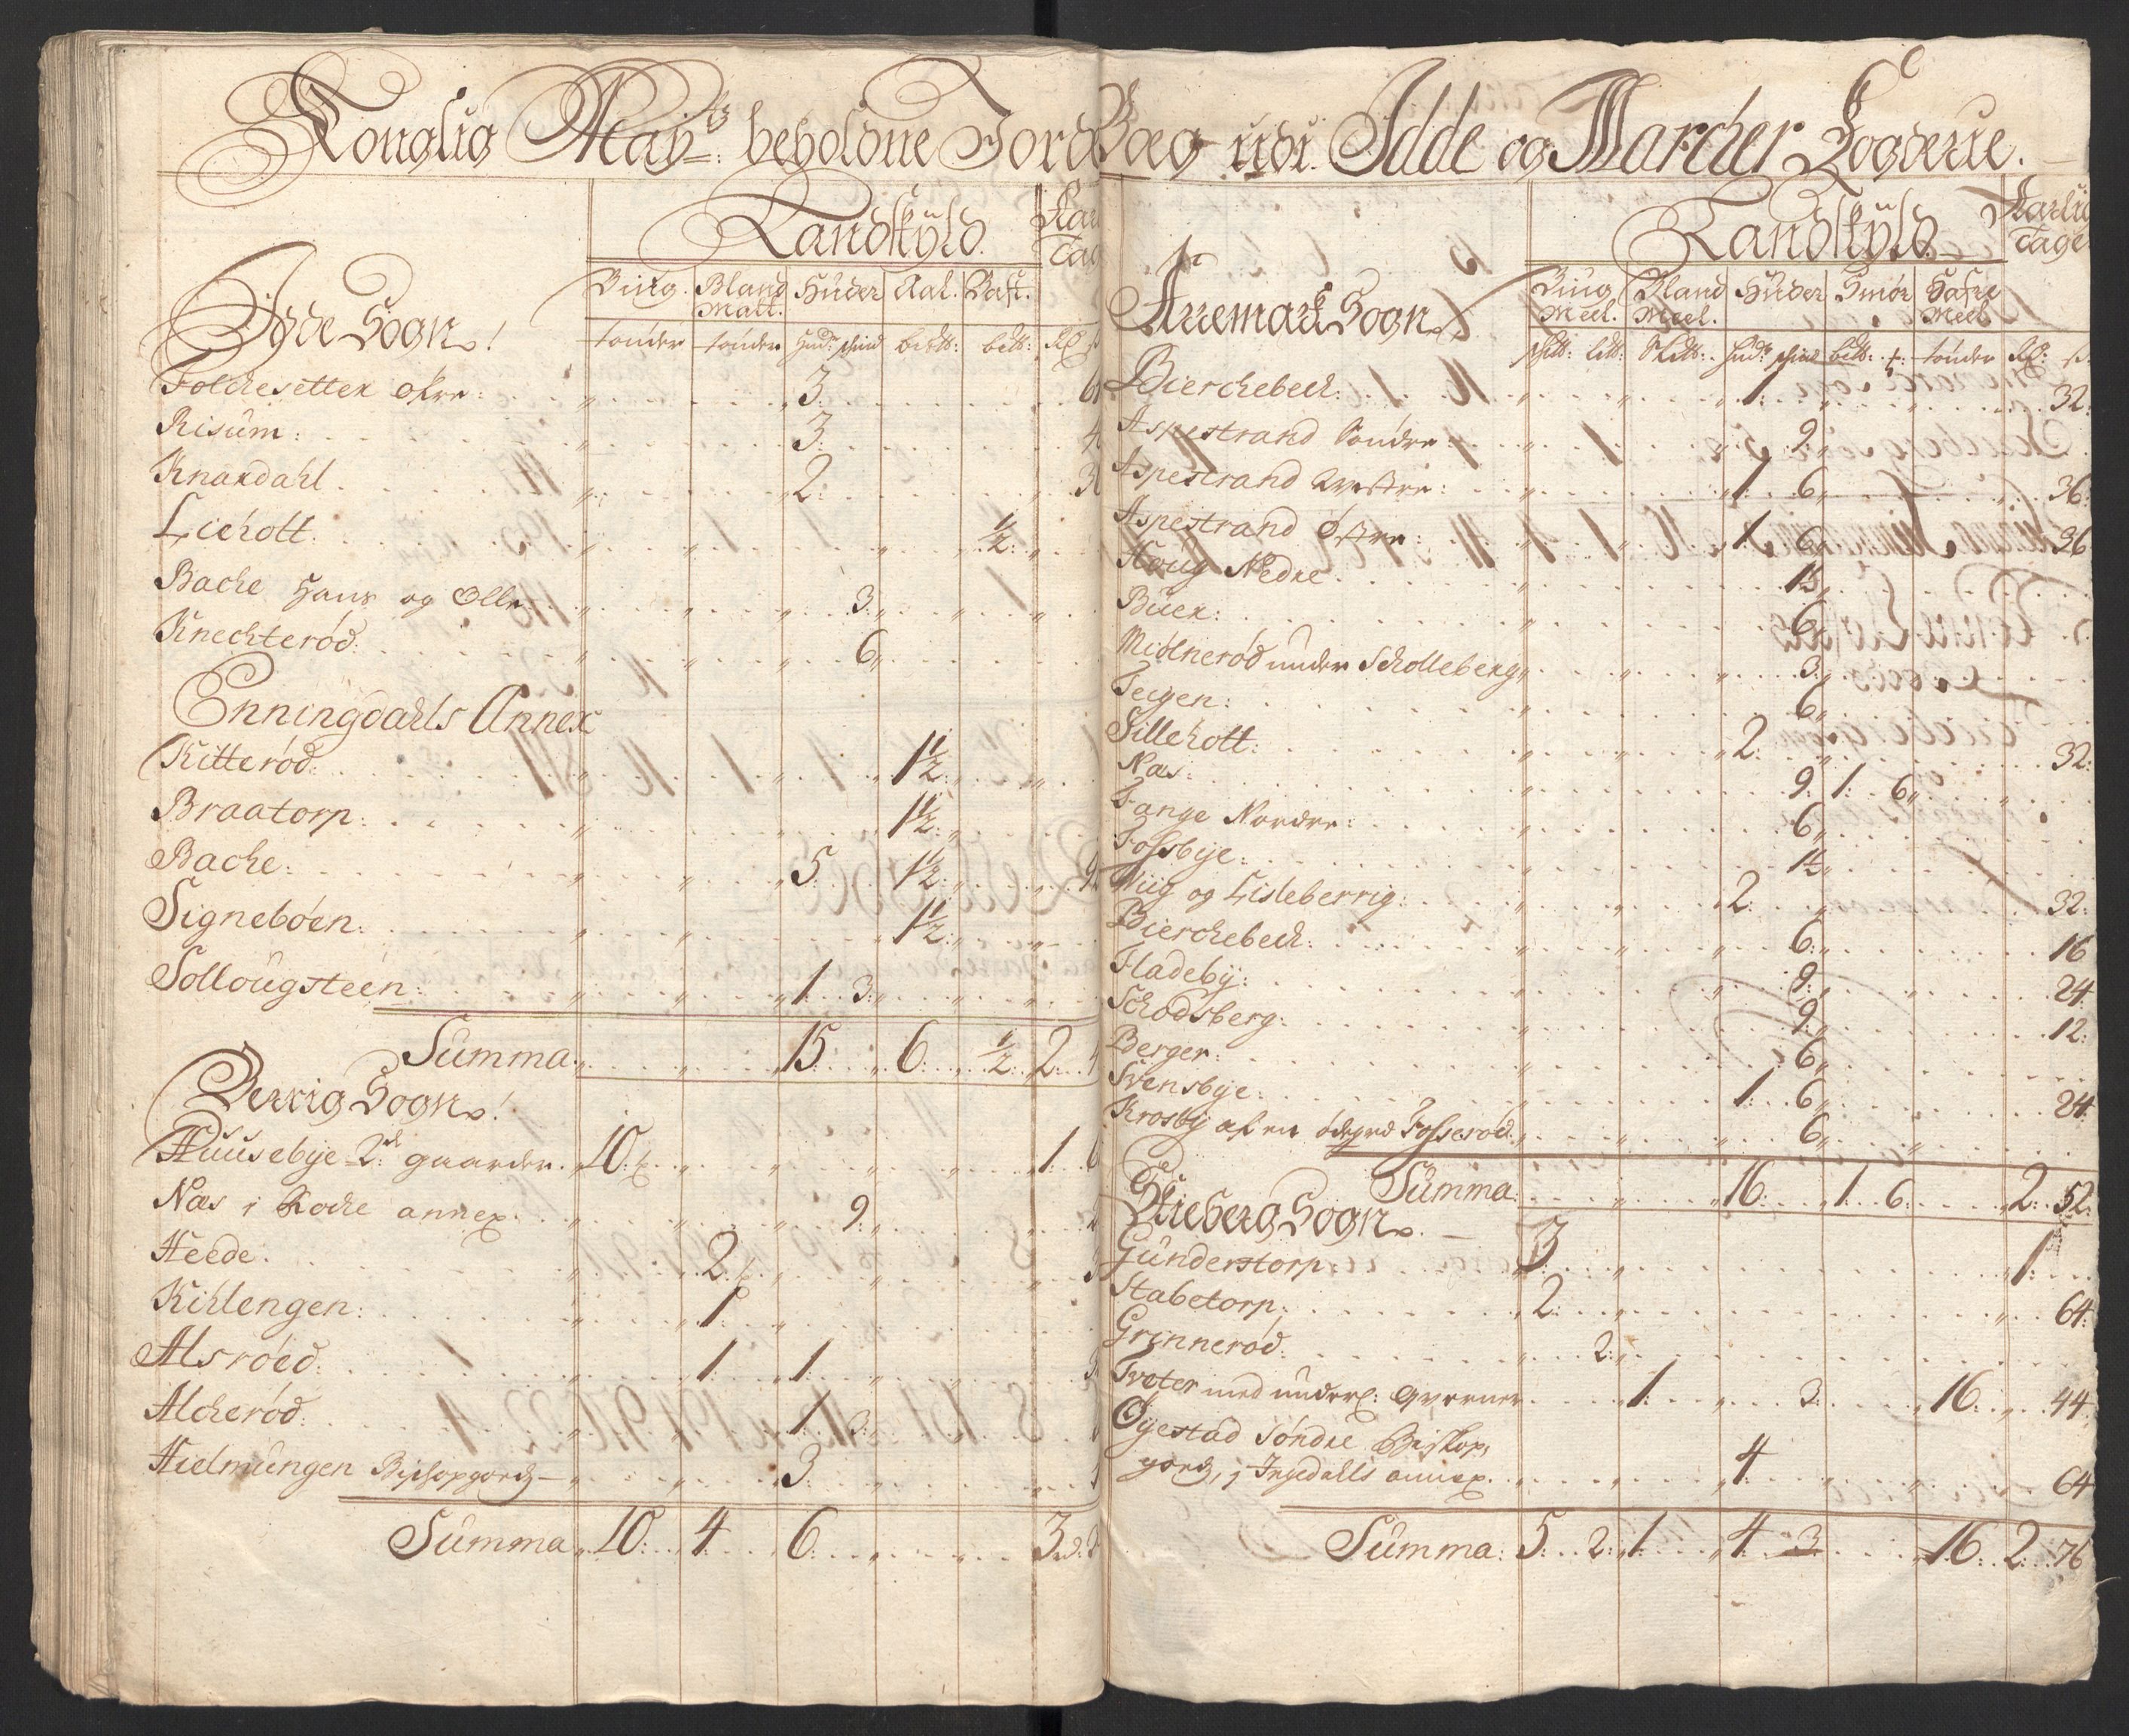 Konglig Mayts: beholdne Jord Bog udi Idde og Marcker Fogderie.
Landskÿld.
Biug. Bland Malt. Huder Aal. Bast.
tønder tønder hud: skind bdtt: bdtt: Rd
Idde Sogn!
Folchesetter øfre: 3
Risum: 3
Knardahl 2
Liekott. 1/2
Bache Hans og Olle 3
Knechterød: 6
Enningdahls Annex
Kitterød: 1 1/2
Braatorp: 1 1/2
Bache: 5 1 1/2
Signebøen: 1 1/2
Sollougsteen: 1 3
Summa 15 6 1/2 2
Berrig Sogn!
Huusebÿe 2de gaarder. 10 1
Næs i Rocke annex: 9
Heede: 2
Kihlengen: 1
Alsrøed: 1 1
Alcherød: 1 3
Hielmungen Bispsgords 3
Summa 10 4 6 3
Landskÿld
Aarlig Tage
Biug Meel. Bland Meel. Huder Smør Hafre Meel
skdtt: ltt: Skdtt: hud: skind bdtt: tønder Rd: s.
Arremark Sogn
Bierchebech: 1 32:
Aspestrand Søndre: 9
Aspestrand Westre: 1 6 36:
Aspestrand Østre: 1 6 36
Houg Nedre
Buer: 6
Miølnerød under Scholleberg 3
Teigen: 6
Sillekott: 2 32:
Næs: 9 1 6
Tange Nordre: 6
Fossbÿe:
Wiig og Lisleberrig: 2 32:
Bierchebech: 6 16
Fladebÿ: 9 24
Schodsberg: 9 12:
Berger: 6
Svensbÿe: 1 6 24
Krosbÿ af en ødegrd Fosserød 6
Summa: 16 1 6 2 52:
Schieberg Sogn
Gunderstorp: 3 1
Stabetorp: 2 64:
Grinnerød: 2
Tveter med underl: Qverner 1 3 16 44
Øyestad Søndre Biskops
gords, i Ingedalls annex. 4 64
Summa: 5 2 1 4 3 16 2 76